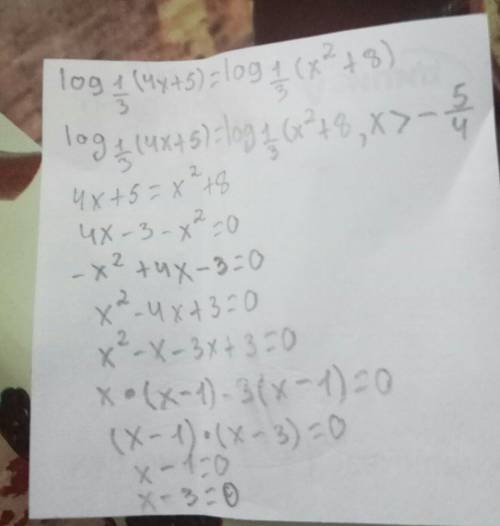 log 1/3 (4x+5)=log 1/3 (x²+8)
log 1/3 (4x+5)=log 1/3 (x²+8, x>-5/4
4x+5=x²+8
4x-3-x²=0
-x²+4x-3=0
x²-4x+3=0
x²-x-3x+3=0
x•(x-1)-3(x-1)=0
(x-1)•(x-3)=0
x-1=0
x-3=0